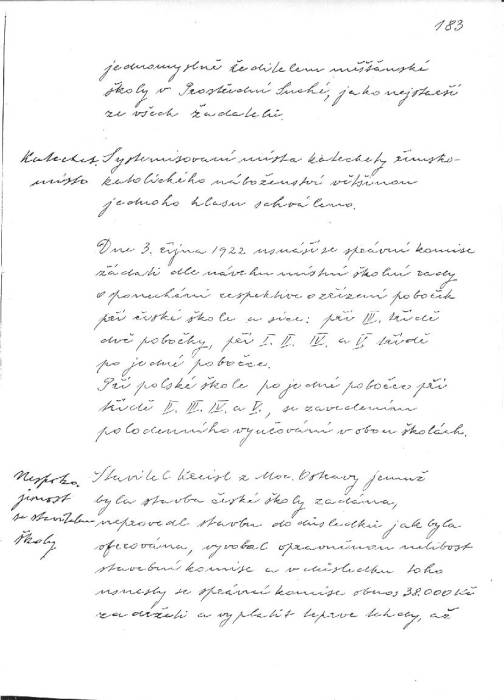 183
jednomyslně ředitelem měšťanské
školy v Prostřední Suché, jako nejstarší
ze všech žadatelů.
Katechet. Systemisovaní místa katechety římsko-
místo katolického náboženství většinou
jednoho hlasu schváleno.
Dne 3. října 1922 usnáší se správní komise
žádati dle návrhu místní školní rady
o ponechání respektive o zřízení poboček
při české škole a sice: při III. třídě
dvě pobočky, při I. II. IV. a V třídě
po jedné pobočce.
Při polské škole po jedné pobočce při
třídě II. III. IV. a V., se zavedením
polodenního vyučování v obou školách.
Nespoko-
jenost
se stavitelem
školy
Stavitel z Mor. Ostravy jemuž
byla stavba české školy zadána,
neprovedl stavbu do důsledků jak byla
oferována, vyvolal oprávněnou nelibost
stavební komise a v důsledku toho
usnesly se správní komise obnos 38.000 Kč
zadržeti a vyplatit teprve tehdy, až